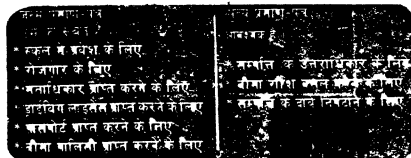 जन्म प्रमाण पत्र
* स्कूल में प्रवेश के लिए
* रोजगार के लिए
* मताधिकार प्राप्त करने के लिए
* ड्राइविंग लाइसेंस प्राप्त करने के लिए
* पासपोर्ट प्राप्त करने के लिए
* बीमा पालिसी प्राप्त करने के लिए
मृत्यु प्रमाण पत्र
आवश्यक है
* सम्पत्ति के उत्तराधिकार के लिए
* बीमा राशि वसूल करने के लिए
* सम्पत्ति के दावे निपटाने के लिए